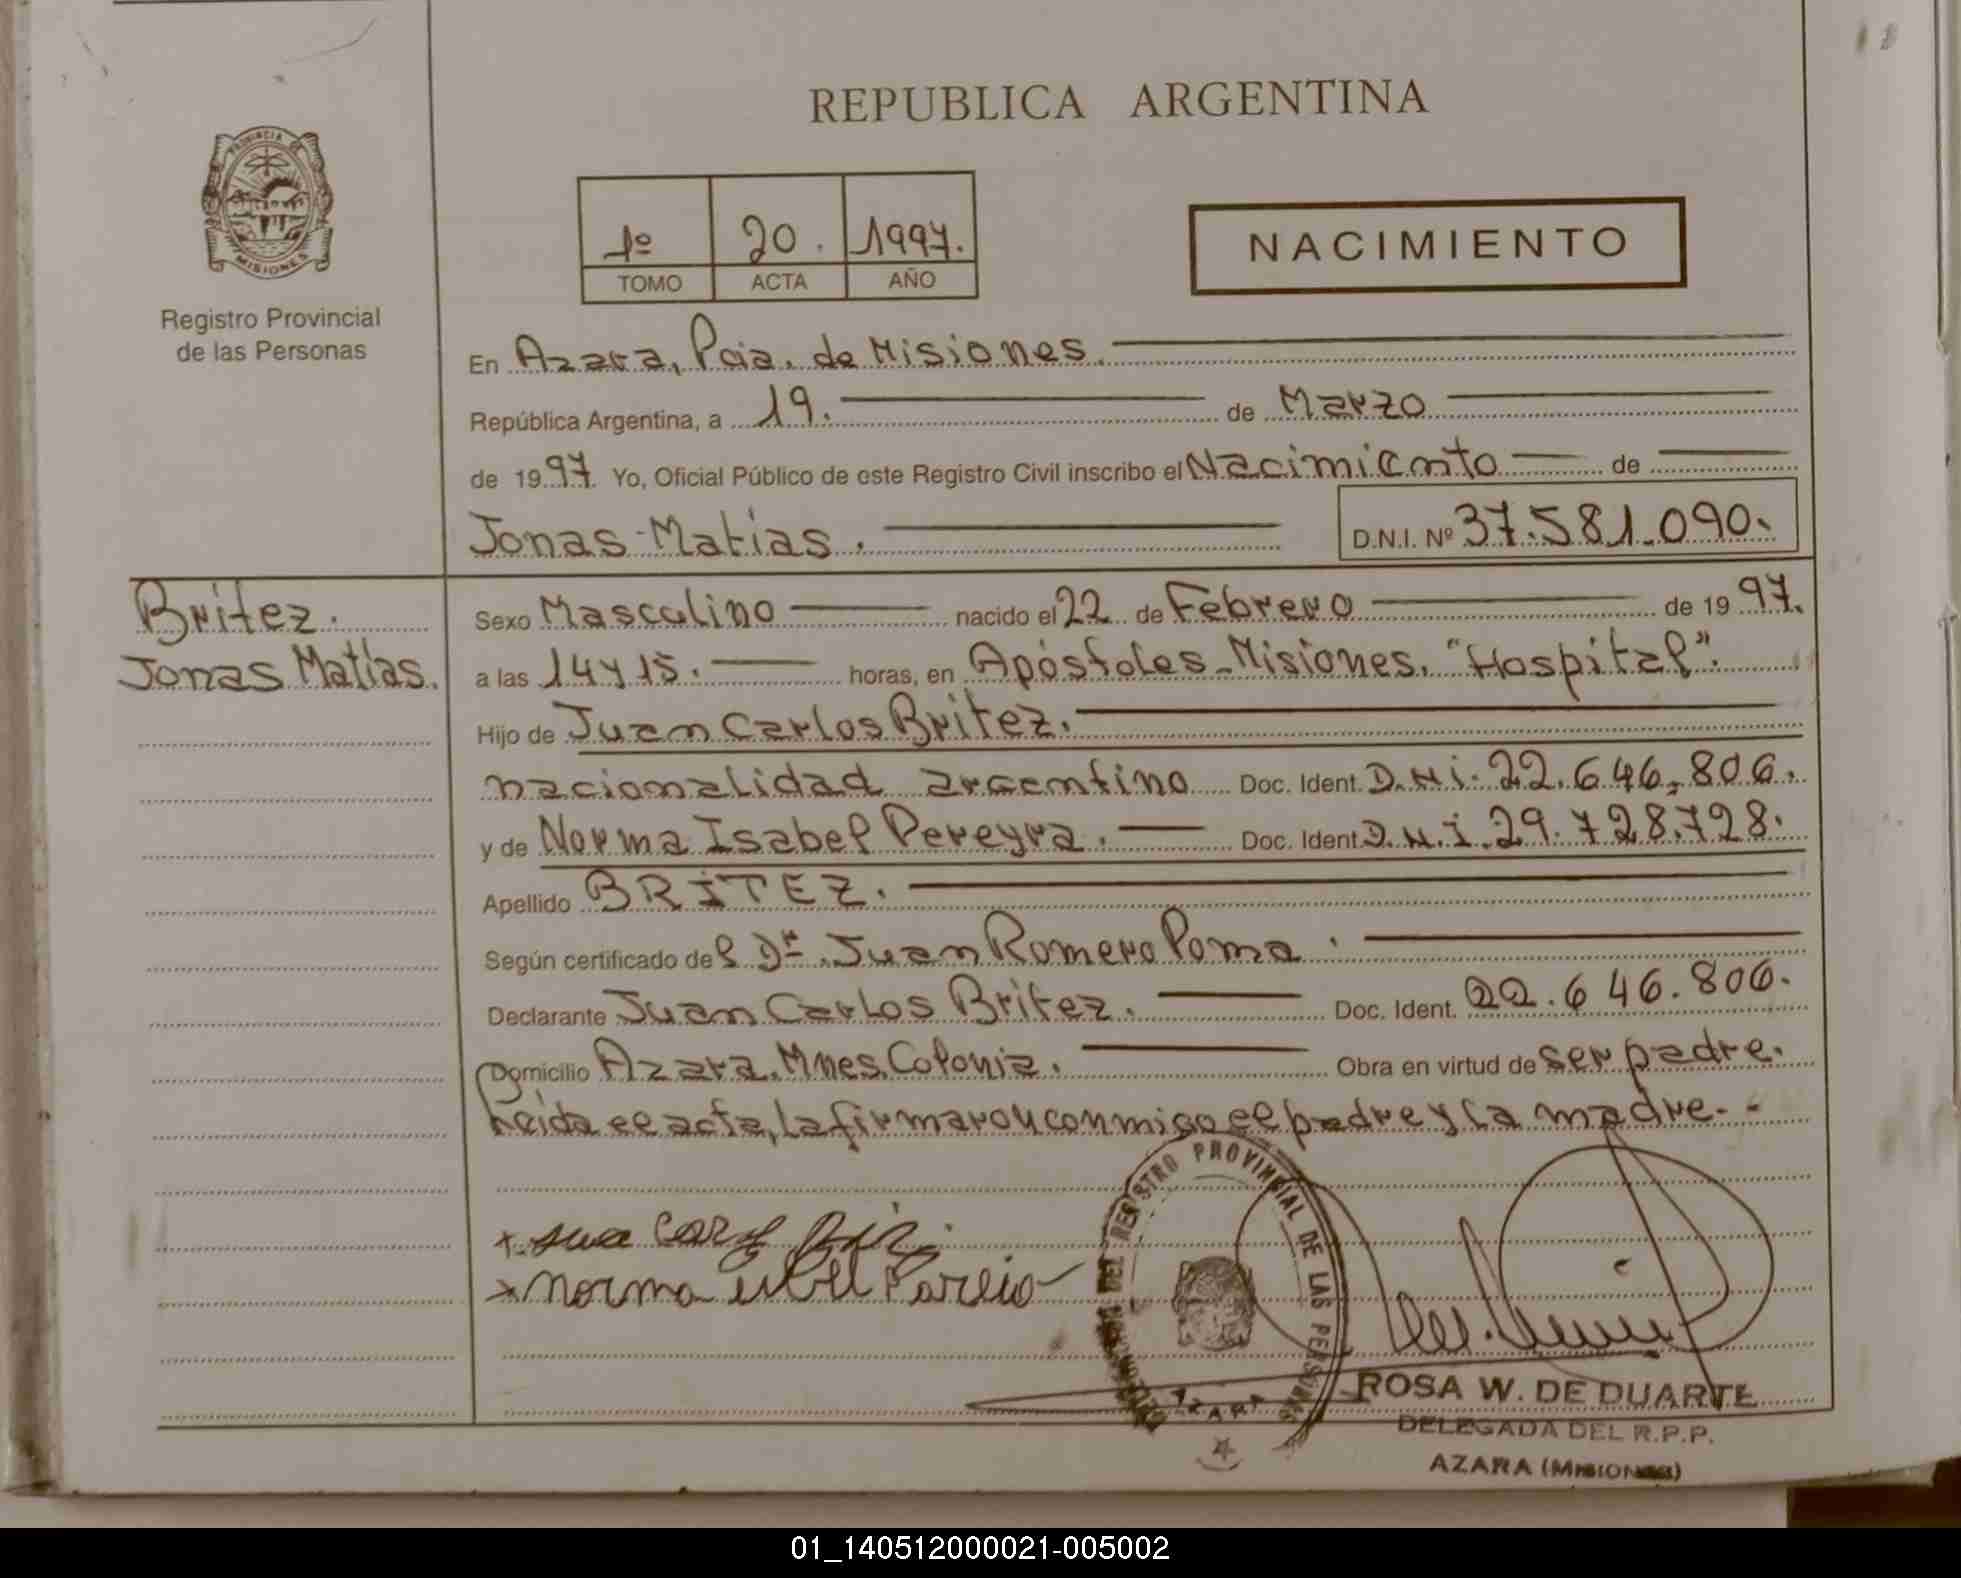 REPUBLICA ARGENTINA
PROVINCIA DE
MISIONES
Registro Provincial
de las Personas
1º 20. 1997.
TOMO ACTA AÑO
NACIMIENTO
En Azara, Pcia. de Misiones.
República Argentina, a 19. de Marzo
de 1997. Yo, Oficial Público de este Registro Civil inscribo el Nacimiento de
Jonas Matías. D.N.I. Nº 37.581.090.
Britez.
Jonas Matías.
Sexo Masculino nacido el 22 de Febrero de 1997.
a las 14 y 15. horas, en Apóstoles - Misiones. "Hospital".
Hijo de Juan Carlos Britez.
nacionalidad argentino Doc. Ident. D.N.i. 22.646.806.
y de Norma Isabel Pereyra. Doc. Ident. D.N.I. 29.728.728.
Apellido BRITEZ.
Según certificado del Dr. Juan Romero Poma.
Declarante Juan Carlos Britez. Doc. Ident. 22.646.806.
Domicilio Azara, Mnes. Colonia. Obra en virtud de ser padre.
Leida el acta, la firmaron conmigo el padre y la madre.-
norma
DEL REGISTRO PROVINCIAL DE LAS PERSONAS
AZARA
ROSA W. DE DUARTE
DELEGADA DEL R.P.P.
AZARA (MISIONES)
01_140512000021-005002